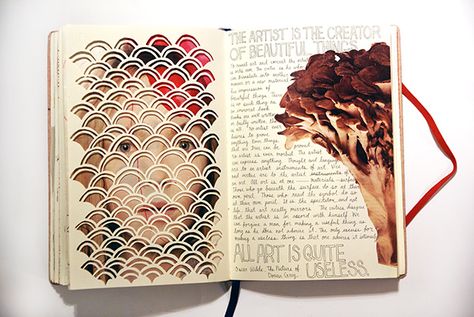 THE ARTIST IS THE CREATOR
OF BEAUTIFUL THINGS
To reveal art and conceal the artist
aim. The critic is he who
translate into
manner or a new material
his impression of
beautiful things. There
is no such thing as
an immoral book.
Books are well written
or badly written. That
is all.
desires to prove
anything. Even things
that are true can be proved.
No artist is ever morbid. The artist
can express everything. Thought and language
are to an artist instruments of art. Vice
and virtue are to the artist
an art. All art is at once surface
Those who go beneath the surface do so at their
own peril. Those who read the symbol do so
at their own peril. It is the spectator, and not
life, that art really mirrors.
that the artist is in accord with himself. We
can forgive a man for making a useful thing as
long as he does not admire it. The only excuse for
making a useless thing is that one admires it intensely
ALL ART IS QUITE
USELESS.
Oscar Wilde, The Picture of
Dorian Gray.